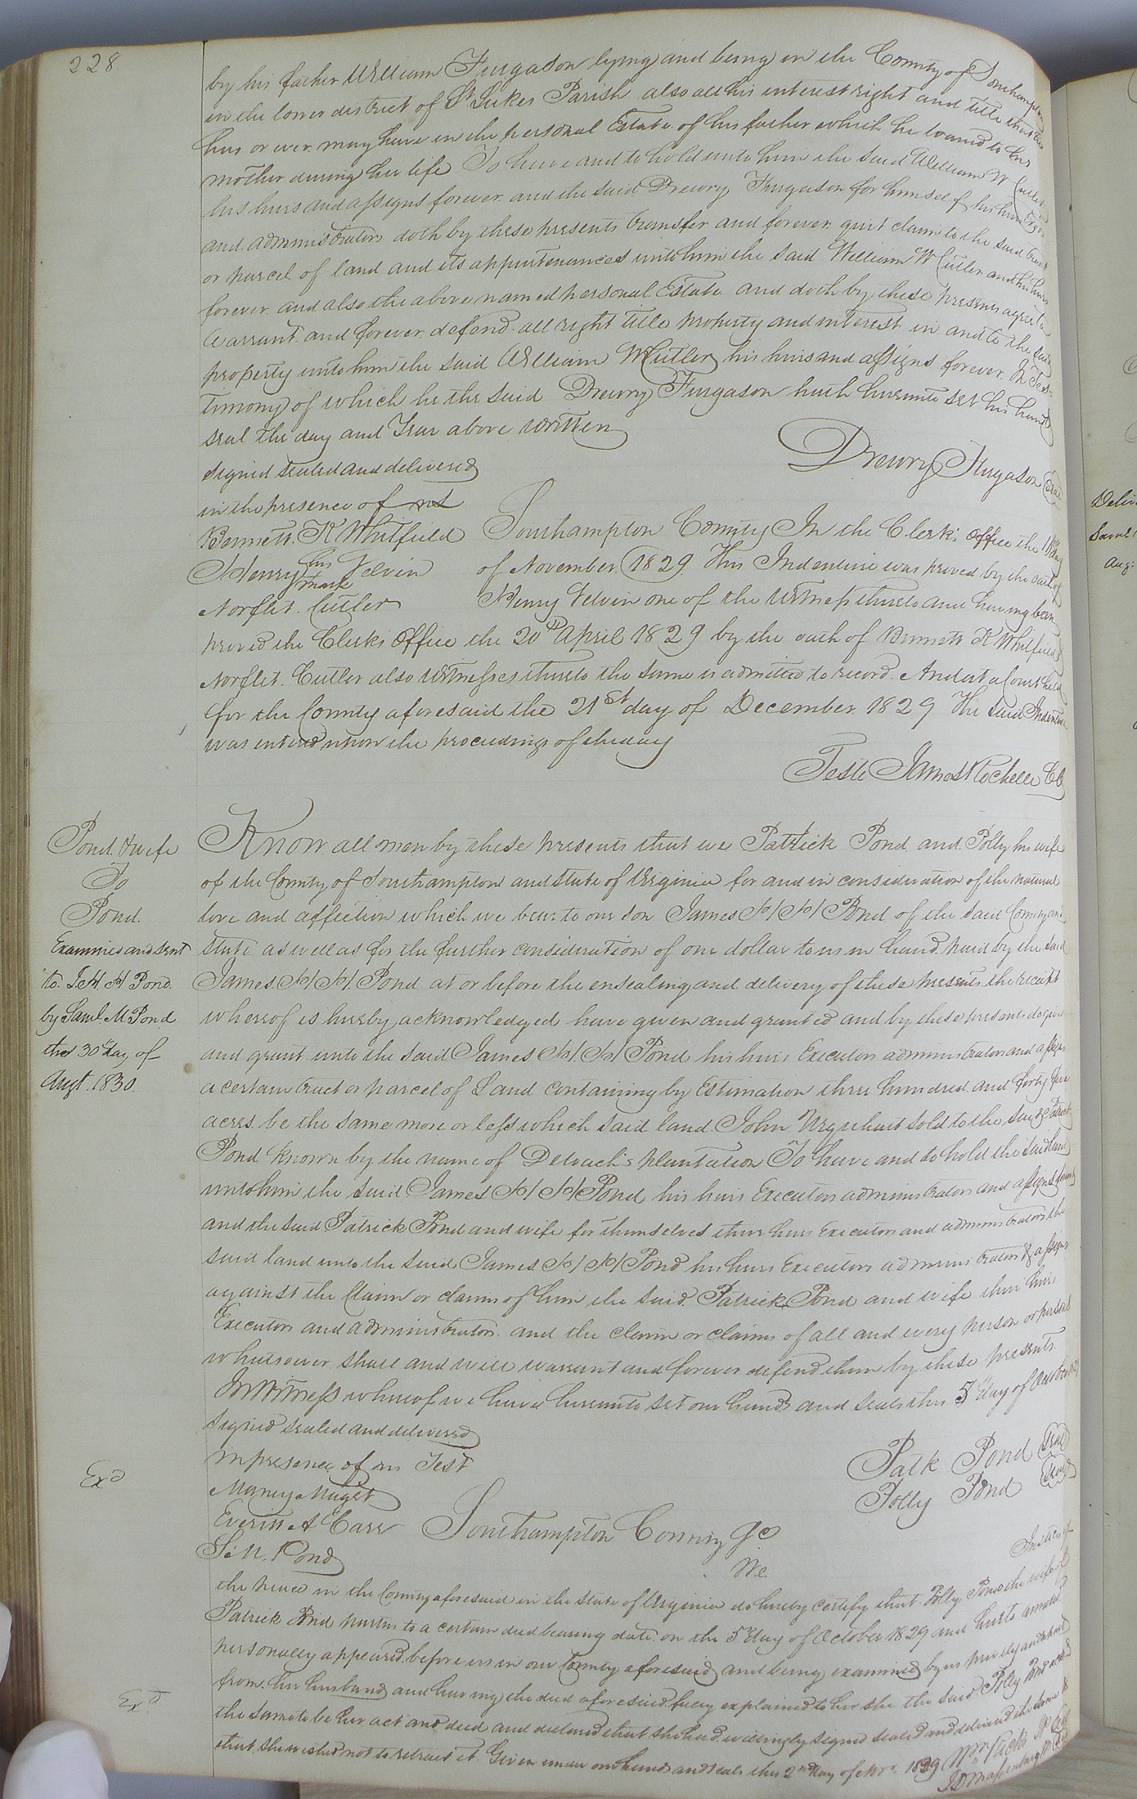 228
by his father William Furgason lying and being in the County of Southampton
in the lower district of St Lukes Parish also all his interest right and title that he
has or ever may have in the personal Estate of his father which he loaned to his
mother during her life To have and to hold unto him the said William W Cutler
his heirs and assigns forever and the said Drewry Furgason for himself his heirs
and administrators doth by these presents transfer and forever quit claim to the said tract
or parcel of land and its appurtenances unto him the said William W Cutler and his heirs
forever and also the above named personal Estate and doth by these presents agree to
warrant and forever defend all right title property and interest in and to the said
property unto him the said William W Cutler his heirs and assigns forever In Tes-
timony of which he the said Drewry Furgason hath hereunto set his hand &
seal the day and Year above written
Signed sealed and delivered
in the presence of
Drewry Furgason Seal
Bennett K Whitfield
Henry his mark Velvin
Norflet Cutler
Southampton County In the Clerks Office the day
of November 1829 This Indenture was proved by the oath of
Henry Velvin one of the Witness thereto and having been
proved the Clerks Office the 20th April 1829 by the oath of Bennett K Whitfield &
Norflet Cutler also Witnesses thereto the same is admitted to record. And at a Court held
for the County aforesaid the 21st day of December 1829 The said Indenture
was entered upon the proceedings of the day
Teste James Rochelle CC
Pond & wife
To
Pond.
Examined and sent
to J H H Pond
by Saml M Pond
the 30 day of
Augt. 1830
Know all men by these presents that we Patrick Pond and Polly his wife
of the County of Southampton and State of Virginia for and in consideration of the natural
love and affection which we bear to our son James H H Pond of the said County and
State as well as for the further consideration of one dollar to us in hand paid by the said
James H H Pond at or before the ensealing and delivery of these presents the receipt
whereof is hereby acknowledged have given and granted and by these presents do give
and grant unto the said James H H Pond his heirs Executors administrators and assigns
a certain tract or parcel of Land containing by Estimation three hundred and forty five
acres be the same more or less which said land John Urquhart sold to the said Patrick
Pond known by the name of Deloach's plantation To have and to hold the said land
unto him the said James H H Pond his heirs Executors administrators and assigns forever
and the said Patrick Pond and wife for themselves their heirs Executors and administrators the
said land unto the said James H H Pond his heirs Executors administrators & assigns
against the Claim or claims of him the said Patrick Pond and wife their heirs
Executors and administrators and the claim or claims of all and every person or persons
whatsoever shall and will warrant and forever defend them by these presents
In Witness whereof we have hereunto set our hands and seals this 5 day of October
Signed sealed and delivered
in presence of us Test
Patk Pond Seal
Polly Pond Seal
Exd
Everitt A Carr
S. M. Pond
Southampton County Sc
We
Justices of
the peace in the County aforesaid in the State of Virginia do hereby certify that Polly Pond the wife of
Patrick Pond parties to a certain deed bearing date on the 5 day of October 1829 and hereto annexed
personally appeared before us in our County aforesaid and being examined by us privily and apart
from her husband and having the deed aforesaid fully explained to her she the said Polly Pond
the same to be her act and deed and declared that she had willingly signed sealed and delivered the same &
that she wished not to retract it Given under our hands and seals this 2nd day of Nov. 1829
Exd